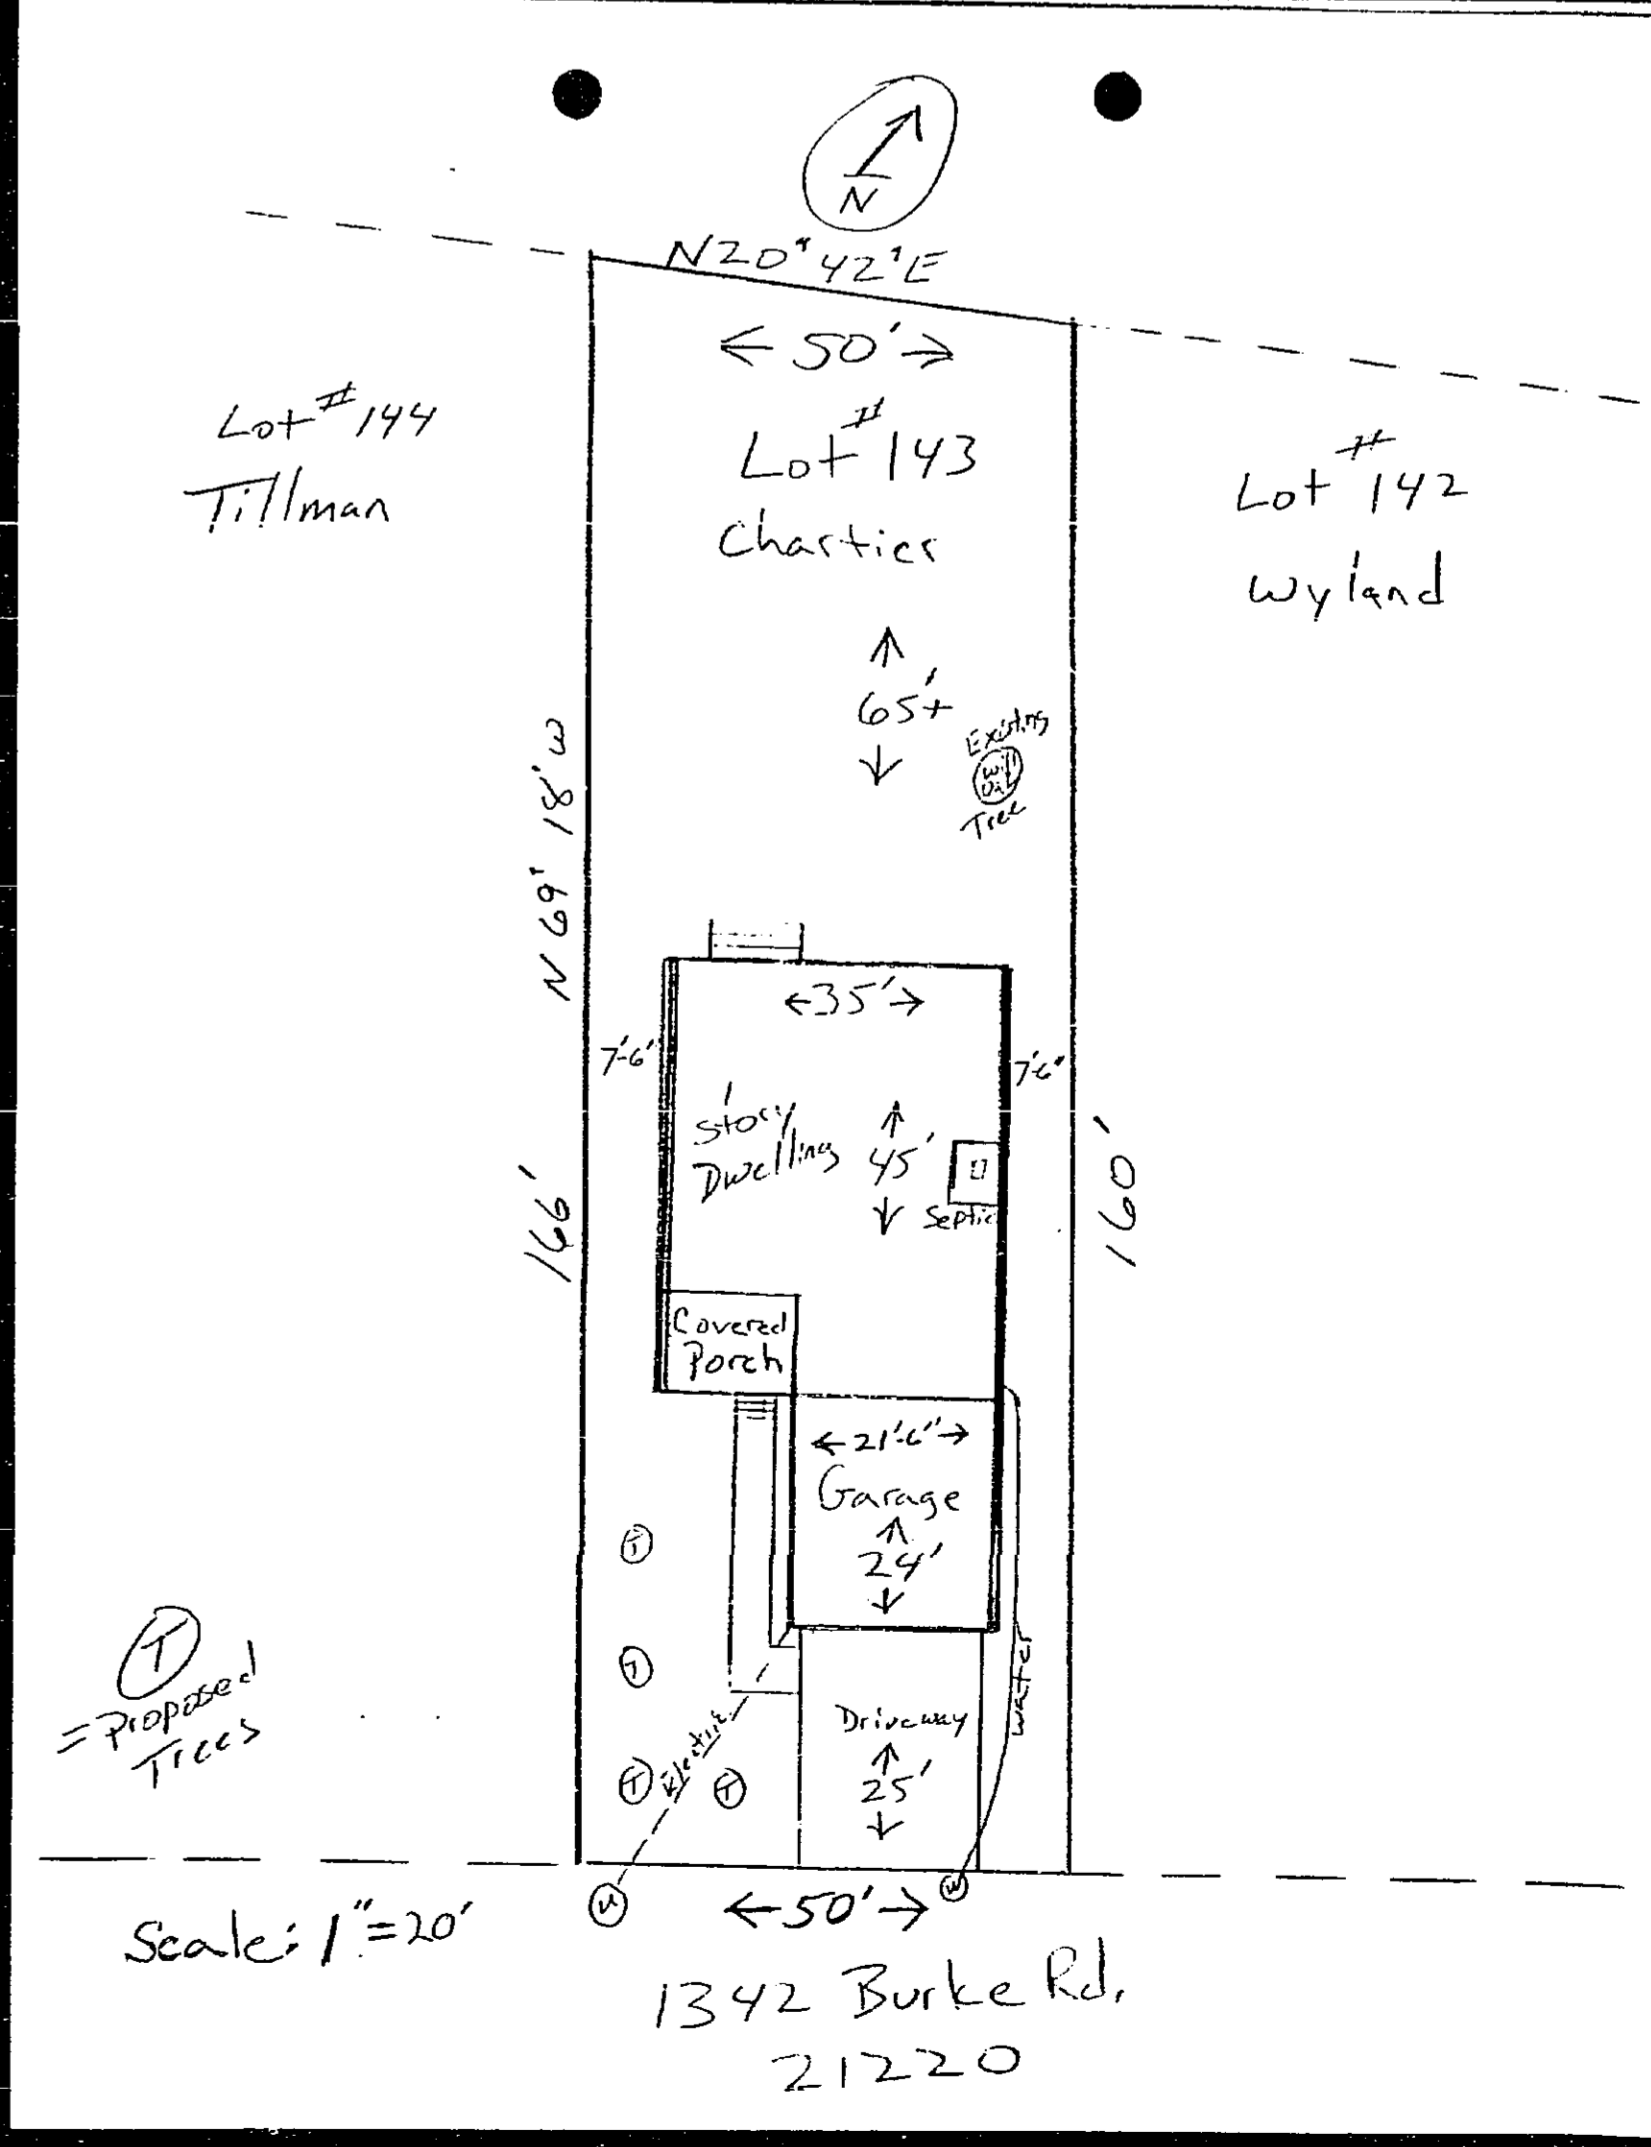 N
N20°42'E
50'
Lot #144
Tillman
Lot #143
Chartier
Lot #142
Wyland
65'+
Existing
Tree
N 69° 18' W
35'
7'-6'
7'-6"
1
Story
Dwelling
45'
Septic
166'
160'
Covered
Porch
21'-6"
Garage
24'
T
T
T
= Proposed
Trees
water
Electric
Driveway
25'
T
T
W
50'
Scale: 1"=20'
1342 Burke Rd.
21220